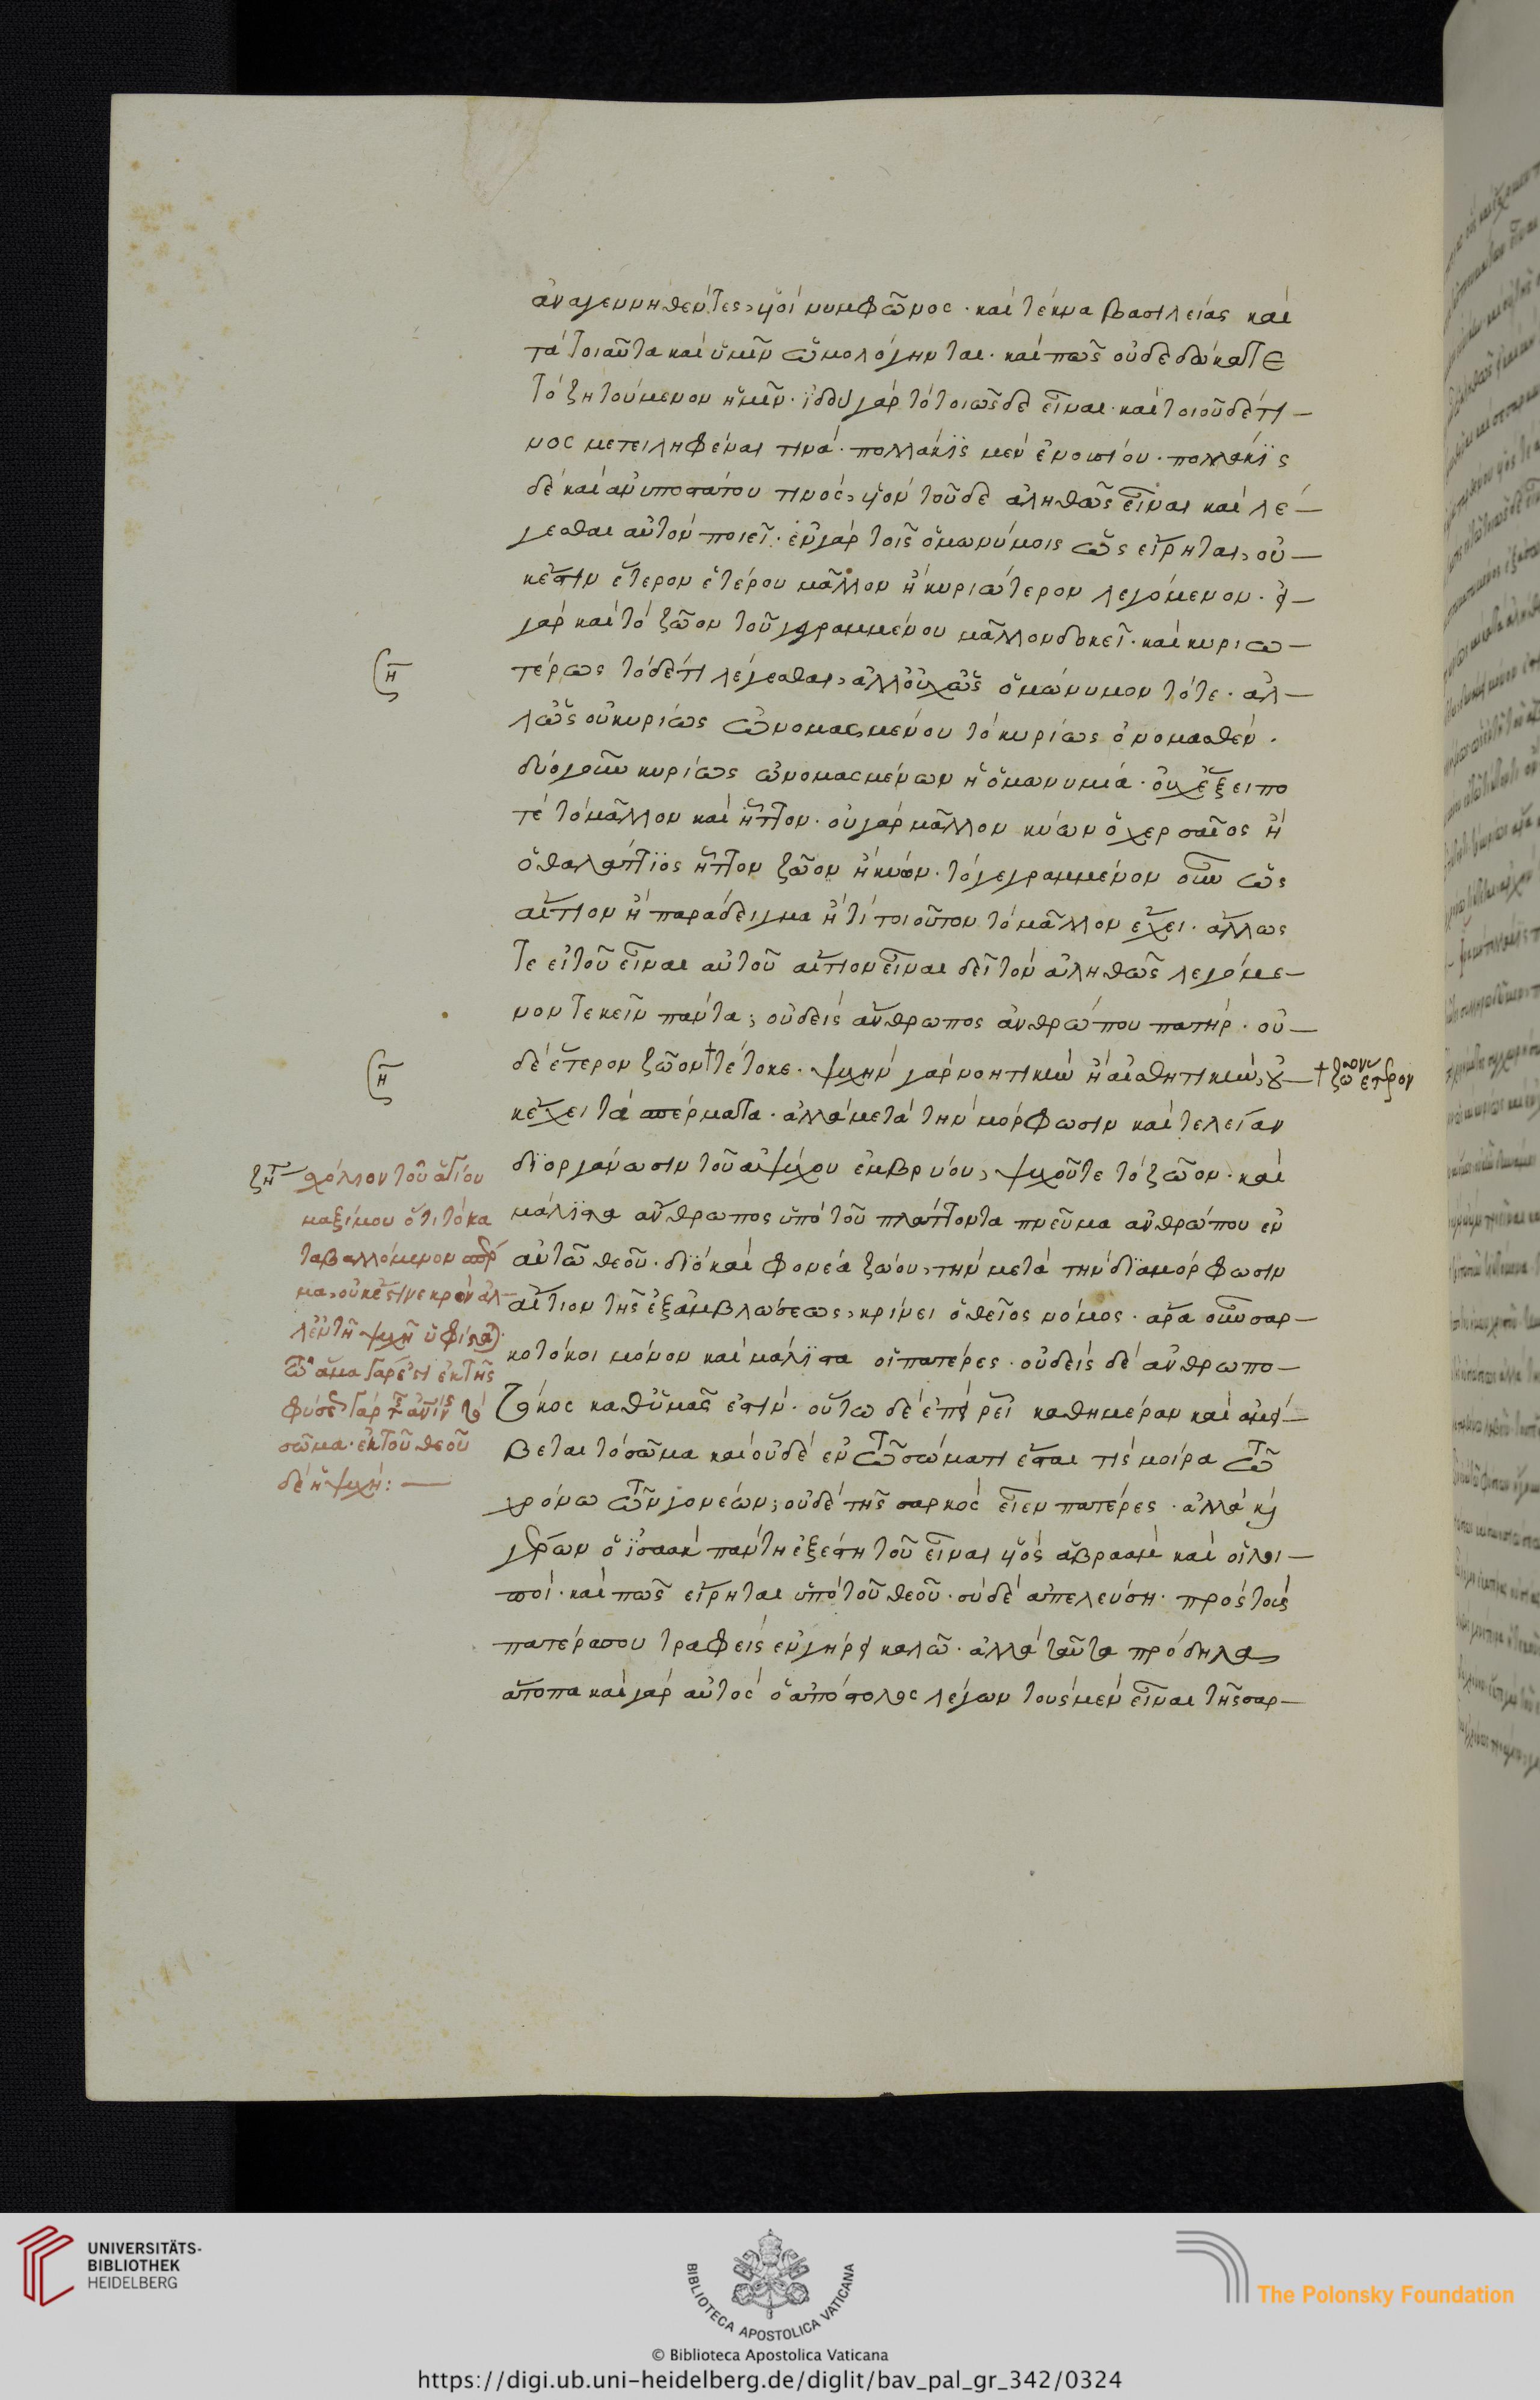 ἀναγεννηθέντες, υἱοὶ νυμφῶνος · καὶ τέκνα βασιλείας καὶ
τὰ τοιαῦτα καὶ ὑμῖν ὡμολόγηνται · καὶ πῶς οὐ δεδώκατε
τὸ ζητούμενον ἡμῖν · ἰδοὺ γὰρ τὸ τοιῶσδε εἶναι · καὶ τοιοῦδέ τι—
νος μετειληφέναι τινά · πολλάκις μὲν ἐνουσίου · πολλάκις
δὲ καὶ ἀνυποστάτου τινός, υἱὸν τοῦδε ἀληθῶς εἶναι καὶ λέ—
γεσθαι αὐτὸν ποιεῖ · ἐν γὰρ τοῖς ὁμωνύμοις ὡς εἴρηται, οὐ—
κέστιν ἕτερον ἑτέρου μᾶλλον ἢ κυριώτερον λεγόμενον · εἰ—
γὰρ καὶ τὸ ζῶον τοῦ γεγραμμένου μᾶλλον δοκεῖ · καὶ κυριω—
τέρως τόδέτι λέγεσθαι, ἀλλ' οὐχ ὡς ὁμώνυμον τότε · ἀλ—
λ' ὡς οὐ κυρίως ὠνομασμένου τὸ κυρίως ὀνομασθέν ·
δύο γοῦν κυρίως ὠνομασμένων ἡ ὁμωνυμία · οὐχ ἕξει πο
τὲ τὸ μᾶλλον καὶ ἧττον · οὐ γὰρ μᾶλλον κύων ὁ χερσαῖος ἢ
ὁ θαλάττιος ἧττον ζῶον ἢ κύων · τὸ γεγραμμένον οὖν ὡς
αἴτιον ἢ παράδειγμα ἤ τι τοιοῦτον τὸ μᾶλλον ἔχει · ἄλλως
τε εἰ τοῦ εἶναι αὐτοῦ αἴτιον εἶναι δεῖ τὸν ἀληθῶς λεγόμε—
νον τεκεῖν πάντα; οὐδεὶς ἄνθρωπος ἀνθρώπου πατήρ · οὐ—
δὲ ἕτερον ζῶον † τέτοκε · ψυχὴν γὰρ νοητικὴν ἢ αἰσθητικήν, οὐ—
† ζῶον ἕτερον
κ ἔχει τὰ σπέρματα · ἀλλὰ μετὰ τὴν μόρφωσιν καὶ τελείαν
διοργάνωσιν τοῦ ἀψύχου ἐμβρύου, ψυχοῦται τὸ ζῶον · καὶ
μάλιστα ἄνθρωπος ὑπὸ τοῦ πλάττοντα πνεῦμα ἀνθρώπου ἐν
αὐτῶ θεοῦ · διὸ καὶ φονέα ζώου, τὴν μετὰ τὴν διαμόρφωσιν
αἴτιον τῆς ἐξαμβλώσεως, κρίνει ὁ θεῖος νόμος · ἆρα οὖν σαρ—
κοτόκοι μόνον καὶ μάλιστα οἱ πατέρες · οὐδεὶς δὲ ἀνθρωπο—
τόκος καθ' ὑμᾶς ἐστίν · οὕτω δὲ ἐπεὶ ῥεῖ καθημέραν καὶ ἀμεί—
βεται τὸ σῶμα καὶ οὐδὲ ἐν τῶ σώματι ἔσται τις μοίρα τῶ
χρόνω τῶν γονέων; οὐδὲ τῆς σαρκὸς εἶεν πατέρες · ἀλλὰ καὶ
γέρων ὁ ἰσαὰκ πάντη ἐξέστη τοῦ εἶναι υἱὸς ἀβραὰμ καὶ οἱ λοι—
ποί · καὶ πῶς εἴρηται ὑπὸ τοῦ θεοῦ · σὺ δὲ ἀπελεύση · πρὸς τοὺς
πατέρας σου τραφεὶς ἐν γήρει καλῶ · ἀλλὰ ταῦτα πρόδηλα
ἄτοπα καὶ γὰρ αὐτὸς ὁ ἀπόστολος λέγων τοὺς μὲν εἶναι τῆς σαρ—
ση
ση
ζητ σχόλιον τοῦ ἁγίου
μαξίμου ὅτι τὸ κα
ταβαλλόμενον σπέρ
μα, οὐκ ἔστι νεκρὸν ἀλ
λ' ἐν τῆ ψυχῆ ὑφίσταται ·
ἅμα γάρ ἐστι ἐκ τῆς
φύσεως γὰρ
σῶμα · ἐκ τοῦ θεοῦ
δὲ ἡ ψυχή : —
UNIVERSITÄTS-
BIBLIOTHEK
HEIDELBERG
BIBLIOTECA APOSTOLICA VATICANA
The Polonsky Foundation
© Biblioteca Apostolica Vaticana
https://digi.ub.uni-heidelberg.de/diglit/bav_pal_gr_342/0324